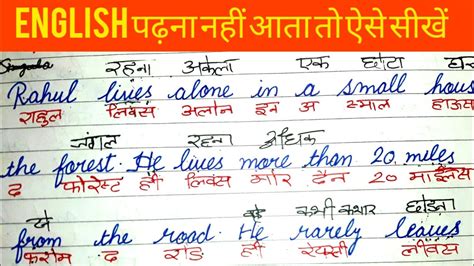 ENGLISH पढ़ना नहीं आता तो ऐसे सीखें
रहना अकेला एक छोटा
Rahul lives alone in a small hous
राहुल लिवस अलोन इन अ स्माल हाऊस
जंगल रहना अधिक
the forest. He lives more than 20 miles
द फोरेस्ट ही लिवस मोर दैन 20 माईलस
से वह कभी कभार छोड़ना
from the road. He rarely leaves
फरोम द रोड ही रेयरली लीवस